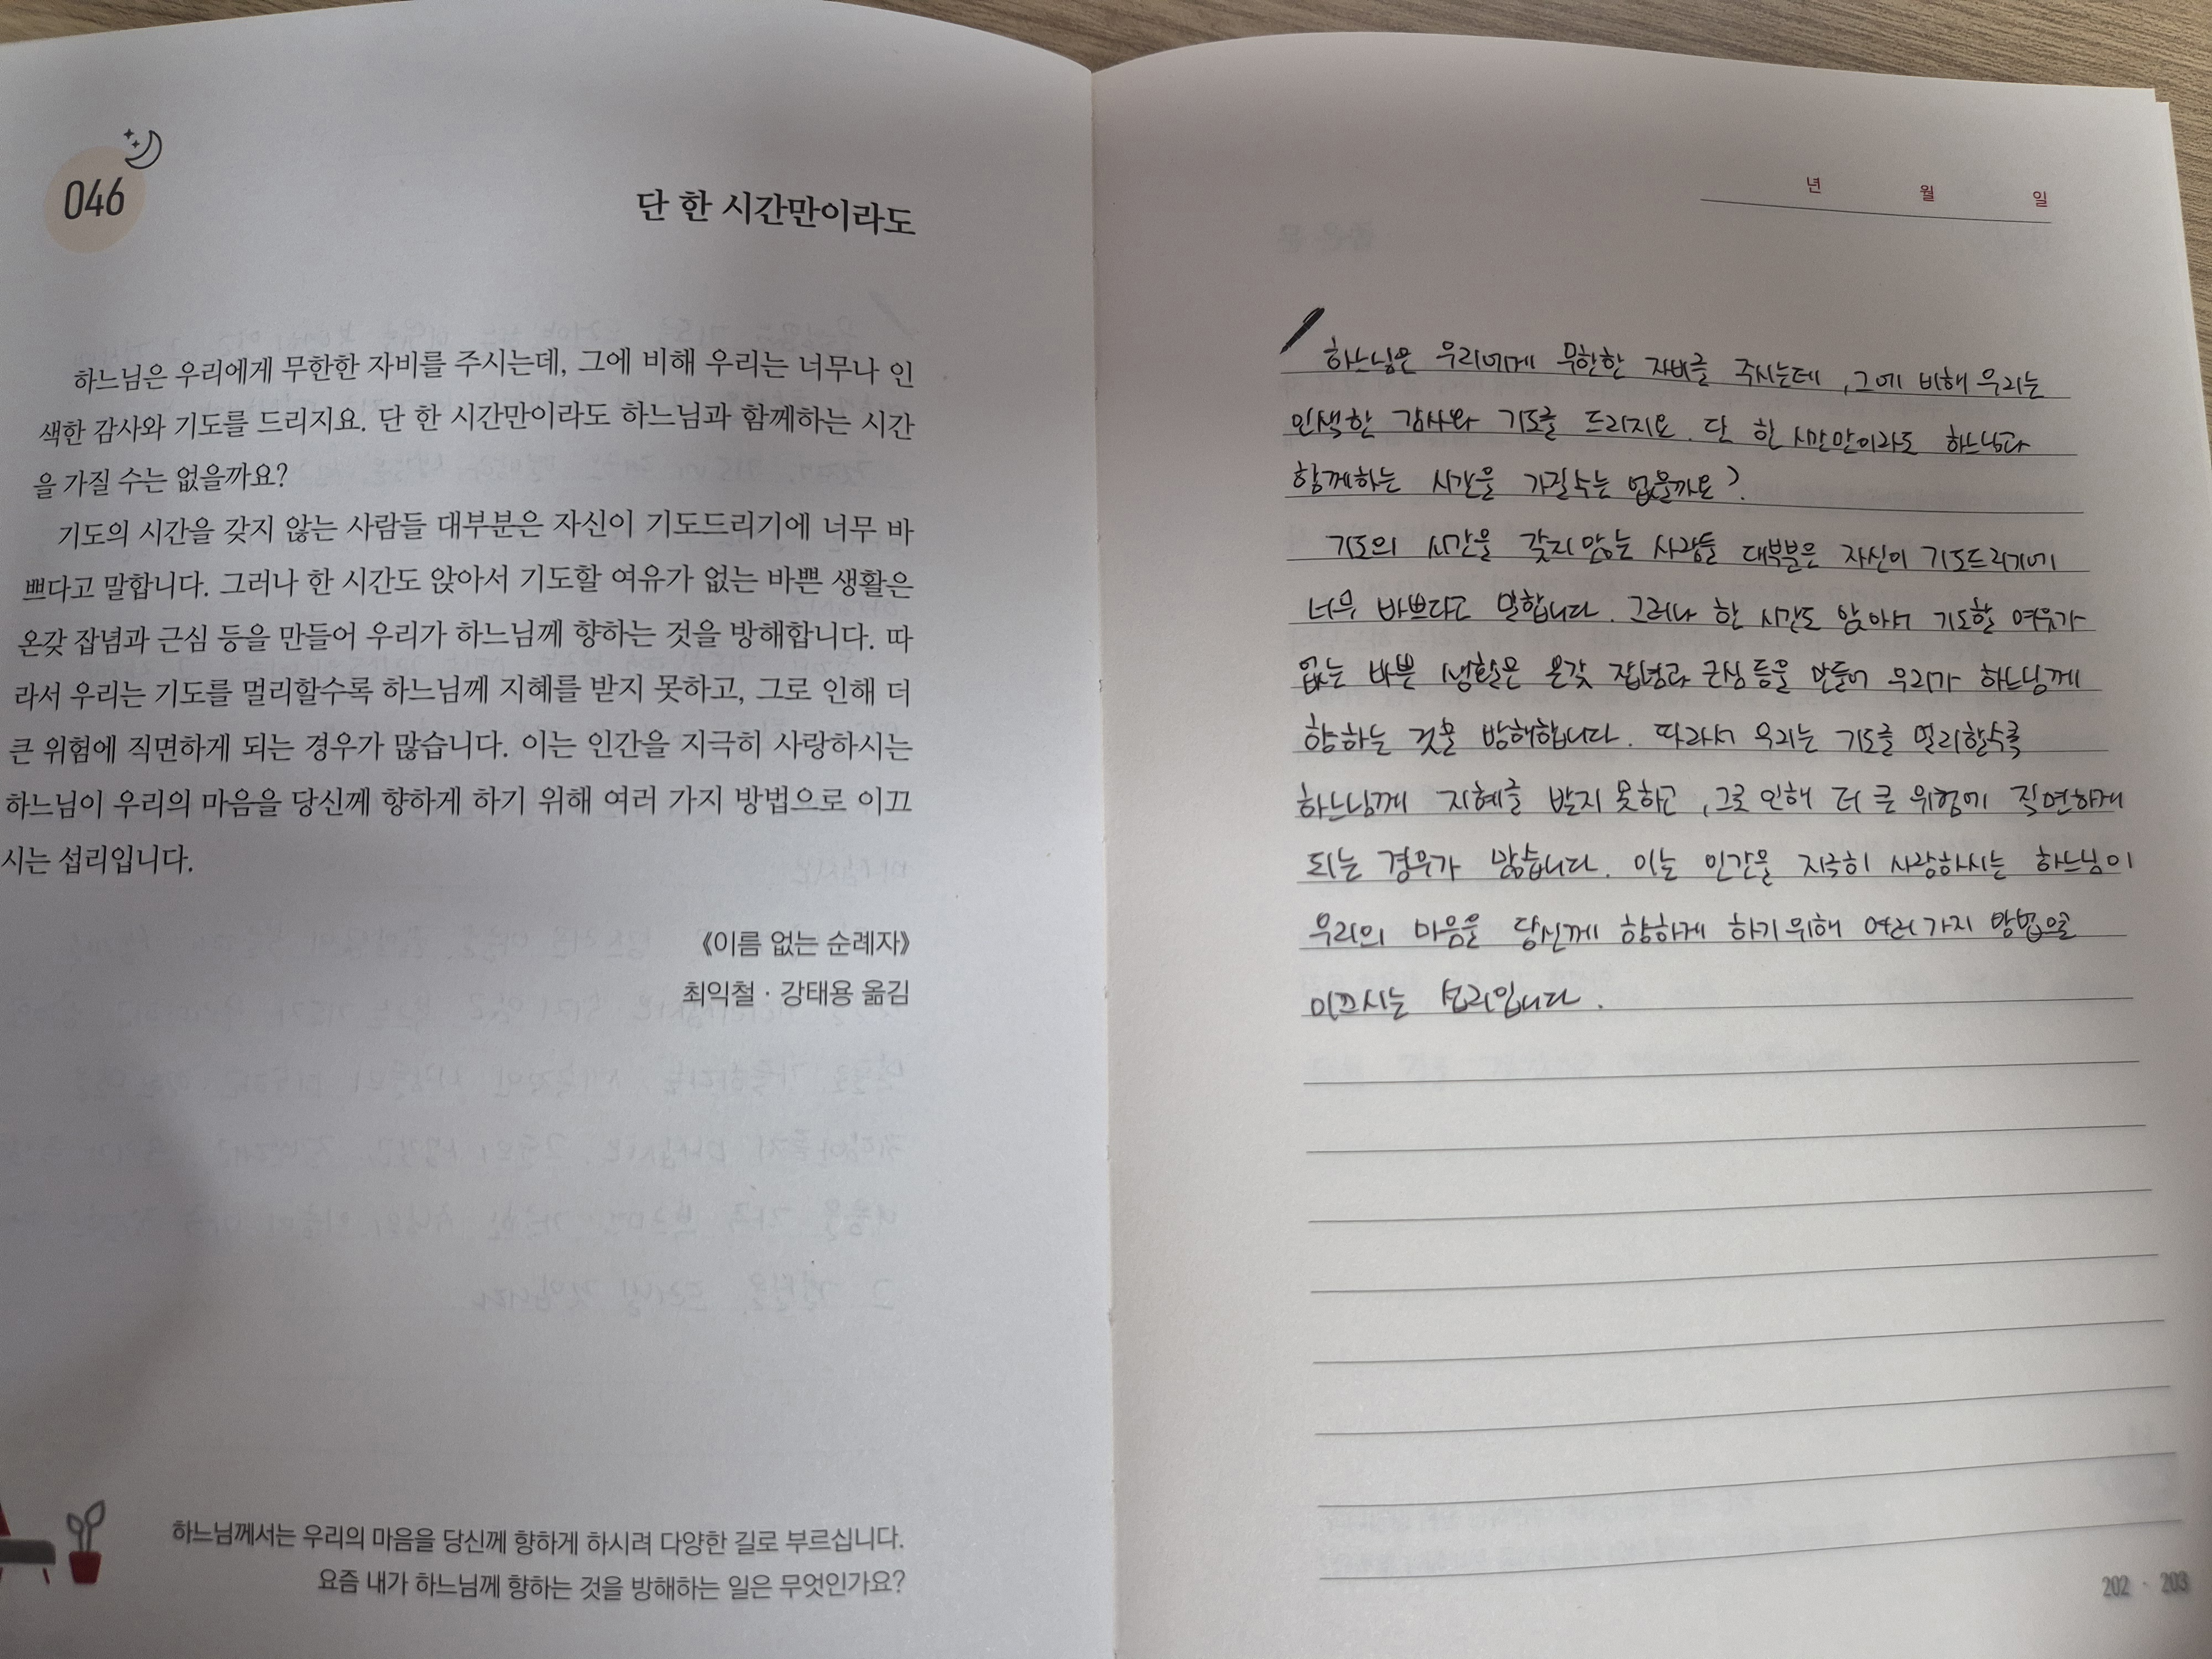 046
단 한 시간만이라도
하느님은 우리에게 무한한 자비를 주시는데, 그에 비해 우리는 너무나 인
색한 감사와 기도를 드리지요. 단 한 시간만이라도 하느님과 함께하는 시간
을 가질 수는 없을까요?
기도의 시간을 갖지 않는 사람들 대부분은 자신이 기도드리기에 너무 바
쁘다고 말합니다. 그러나 한 시간도 앉아서 기도할 여유가 없는 바쁜 생활은
온갖 잡념과 근심 등을 만들어 우리가 하느님께 향하는 것을 방해합니다. 따
라서 우리는 기도를 멀리할수록 하느님께 지혜를 받지 못하고, 그로 인해 더
큰 위험에 직면하게 되는 경우가 많습니다. 이는 인간을 지극히 사랑하시는
하느님이 우리의 마음을 당신께 향하게 하기 위해 여러 가지 방법으로 이끄
시는 섭리입니다.
《이름 없는 순례자》
최익철 · 강태용 옮김
하느님께서는 우리의 마음을 당신께 향하게 하시려 다양한 길로 부르십니다.
요즘 내가 하느님께 향하는 것을 방해하는 일은 무엇인가요?
년 월 일
하느님은 우리에게 무한한 자비를 주시는데, 그에 비해 우리는
인색한 감사와 기도를 드리지요. 단 한 시간만이라도 하느님과
함께하는 시간을 가질수는 없을까요?
기도의 시간을 갖지 않는 사람들 대부분은 자신이 기도드리기에
너무 바쁘다고 말합니다. 그러나 한 시간도 앉아서 기도할 여유가
없는 바쁜 생활은 온갖 잡념과 근심 등을 만들어 우리가 하느님께
향하는 것을 방해합니다. 따라서 우리는 기도를 멀리할수록
하느님께 지혜를 받지 못하고, 그로 인해 더 큰 위험에 직면하게
되는 경우가 많습니다. 이는 인간을 지극히 사랑하시는 하느님이
우리의 마음을 당신께 향하게 하기 위해 여러 가지 방법으로
이끄시는 섭리입니다.
202 · 203